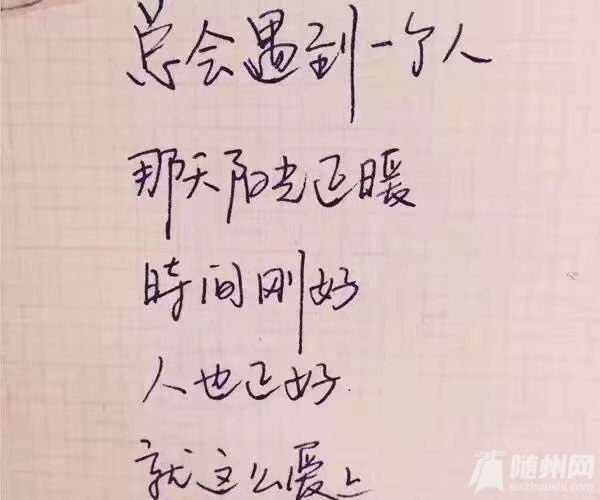 总会遇到一个人
那天阳光正暖
時间刚好
人也正好
就这么爱上
随州网
suizhoushi.com